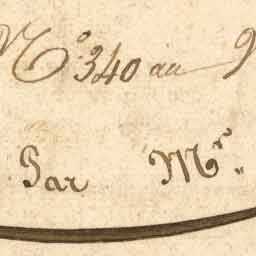 N.º 340 au
Par Mrs.